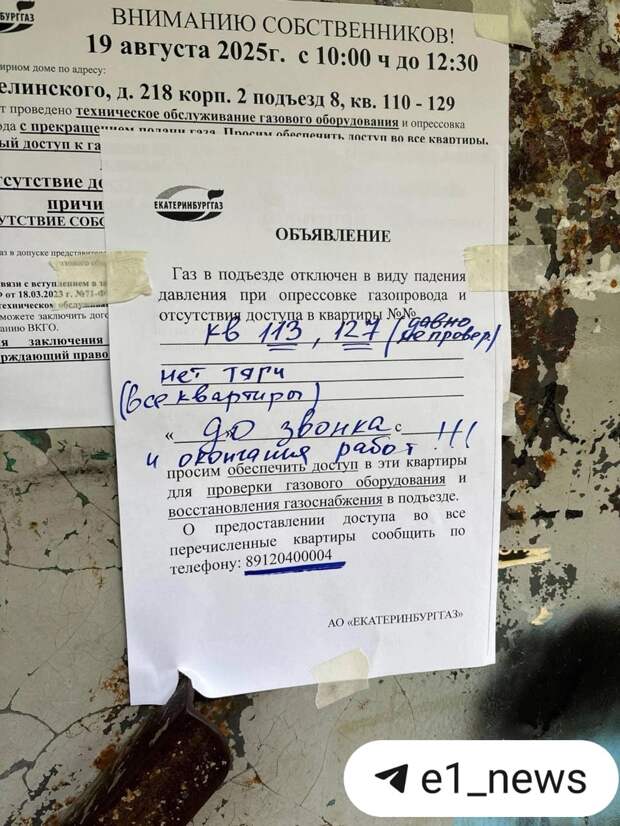 ВНИМАНИЮ СОБСТВЕННИКОВ!
19 августа 2025г. с 10:00 ч до 12:30
ирном доме по адресу:
елинского, д. 218 корп. 2 подъезд 8, кв. 110 - 129
т проведено техническое обслуживание газового оборудования и опрессовка
ода с прекращением подачи газа. Просим обеспечить доступ во все квартиры.
ый доступ к га
сутствие до
причи
УТСТВИЕ СОБС
аз в допуске представител
вязи с вступлением в за
Ф от 18.03.2023 г. №71-Ф
техническом обслужив
можете заключить дого
анию ВКГО.
ия заключения
рждающий право
ЕКАТЕРИНБУРГГАЗ
ОБЪЯВЛЕНИЕ
Газ в подъезде отключен в виду падения
давления при опрессовке газопровода и
отсутствия доступа в квартиры №№
кв 113, 127 (давно не провер.)
нет тяги
(все квартиры)
« до звонка с
и окончания работ !!!
просим обеспечить доступ в эти квартиры
для проверки газового оборудования и
восстановления газоснабжения в подъезде.
О предоставлении доступа во все
перечисленные квартиры сообщить по
телефону: 89120400004
АО «ЕКАТЕРИНБУРГГАЗ»
e1_news